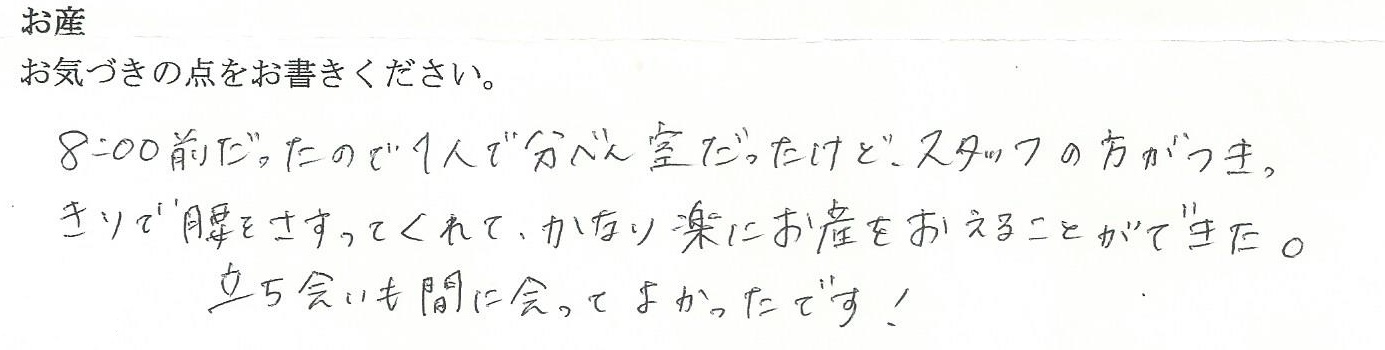 お産
お気づきの点をお書きください。
8:00前だったので1人で分べん室だったけど、スタッフの方がつきっ
きりで腰をさすってくれて、かなり楽にお産をおえることができた。
立ち会いも間に会ってよかったです!